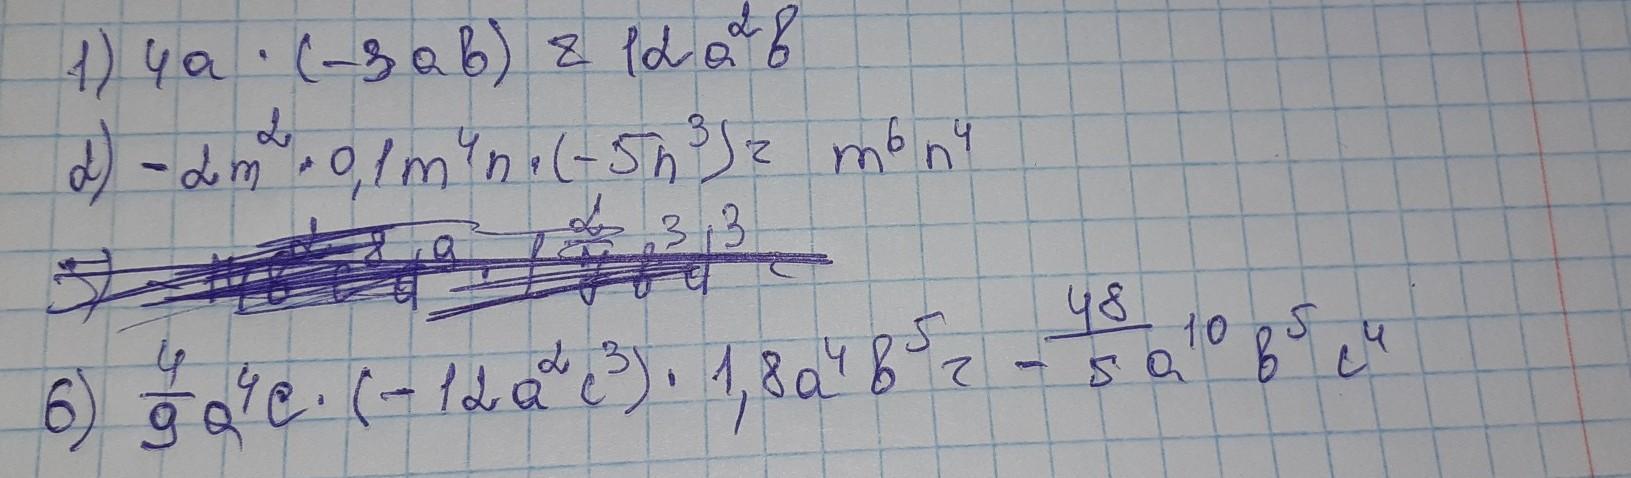 1) 4a · (-3ab) = 12a²b
2) -2m² · 0,1m⁴n · (-5n³) = m⁶n⁴
6) 4/9 a⁴c · (-12a²c³) · 1,8a⁴b⁵ = - 48/5 a¹⁰ b⁵ c⁴